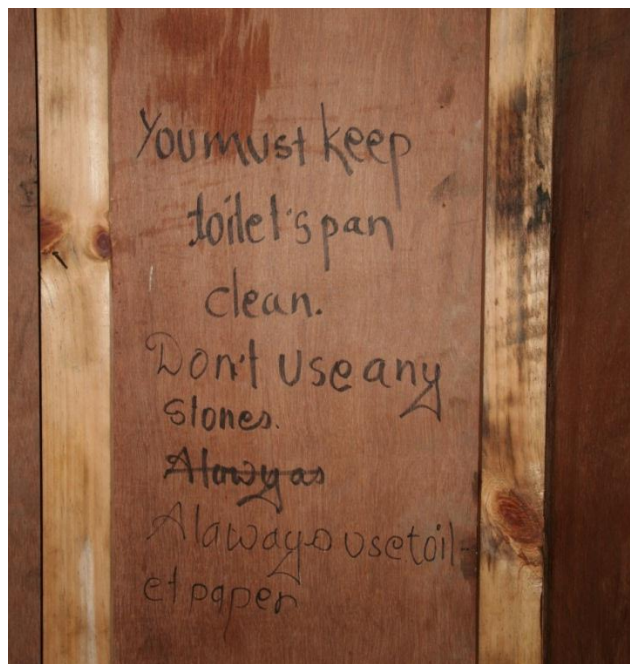 You must keep
toilet's pan
clean.
Don't use any
stones.
Alawyas
Alaways use toil-
et paper